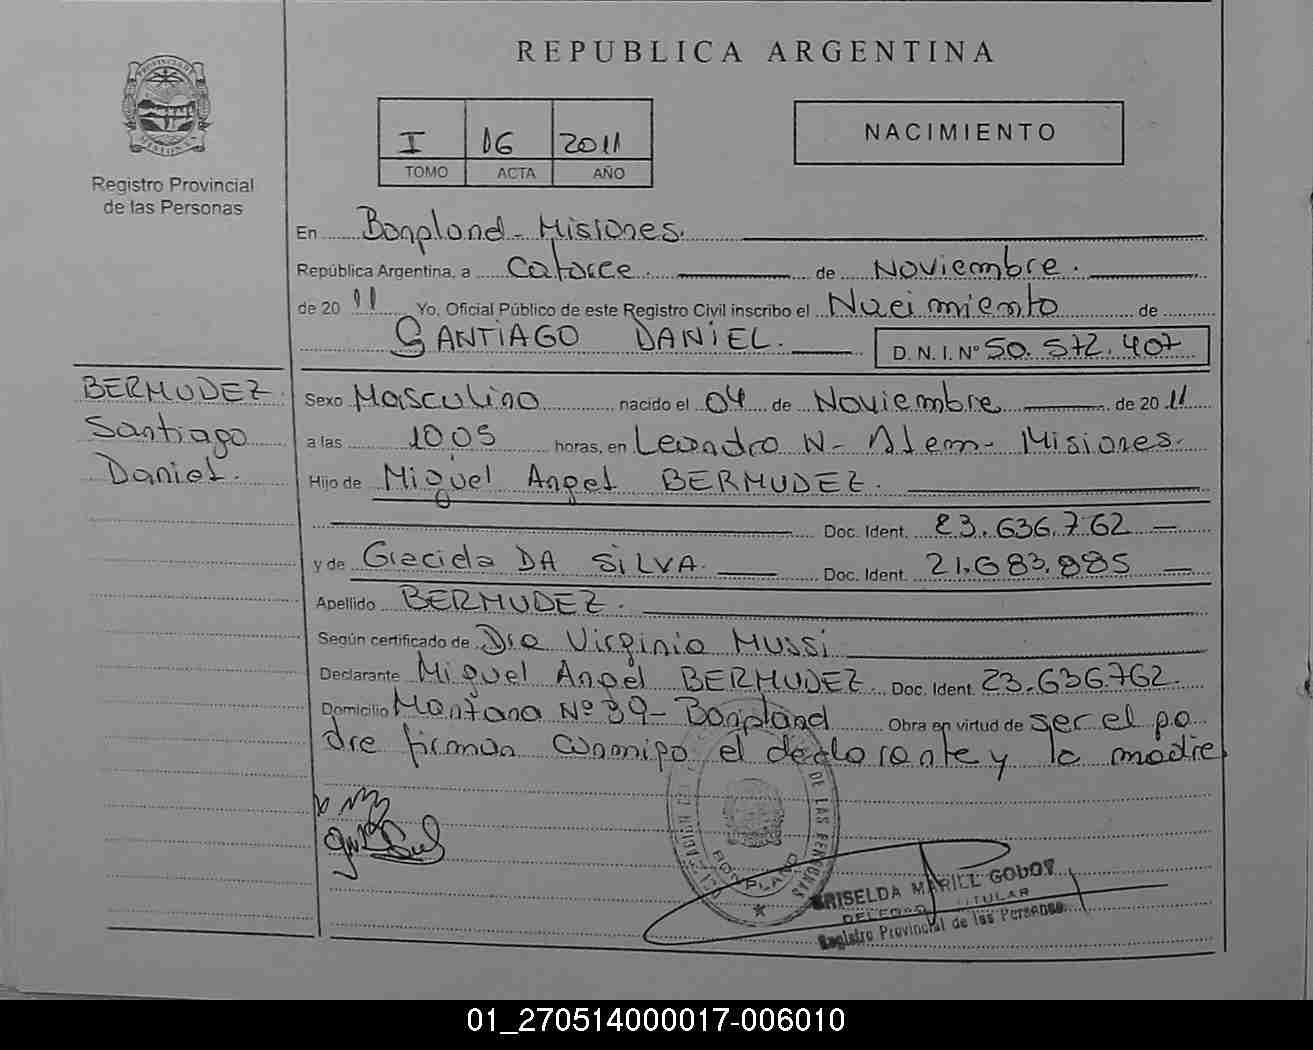 REPUBLICA ARGENTINA
PROVINCIA DE
MISIONES
Registro Provincial
de las Personas
I 16 2011
TOMO ACTA AÑO
NACIMIENTO
En Bonpland - Misiones.
República Argentina, a Catorce. de Noviembre.
de 20 11 Yo, Oficial Público de este Registro Civil inscribo el Nacimiento de
SANTIAGO DANIEL. D.N.I. Nº 50.572.407
BERMUDEZ
Santiago
Daniel.
Sexo Masculino nacido el 04 de Noviembre de 20 11
a las 10.05 horas, en Leandro N- Alem- Misiones.
Hijo de Miguel Angel BERMUDEZ.
Doc. Ident. 23.636.762
y de Graciela DA SILVA. Doc. Ident. 21.683.885
Apellido BERMUDEZ.
Según certificado de Dra Virginia Mussi
Declarante Miguel Angel BERMUDEZ Doc. Ident. 23.636.762.
Domicilio Montaña Nº 39- Bonpland Obra en virtud de ser el pa
dre firman conmigo el declarante y la madre
DE LAS PERSONAS
BONPLAND
GRISELDA MARIEL GODOY
DELEGADO TITULAR
Registro Provincial de las Personas
01_270514000017-006010